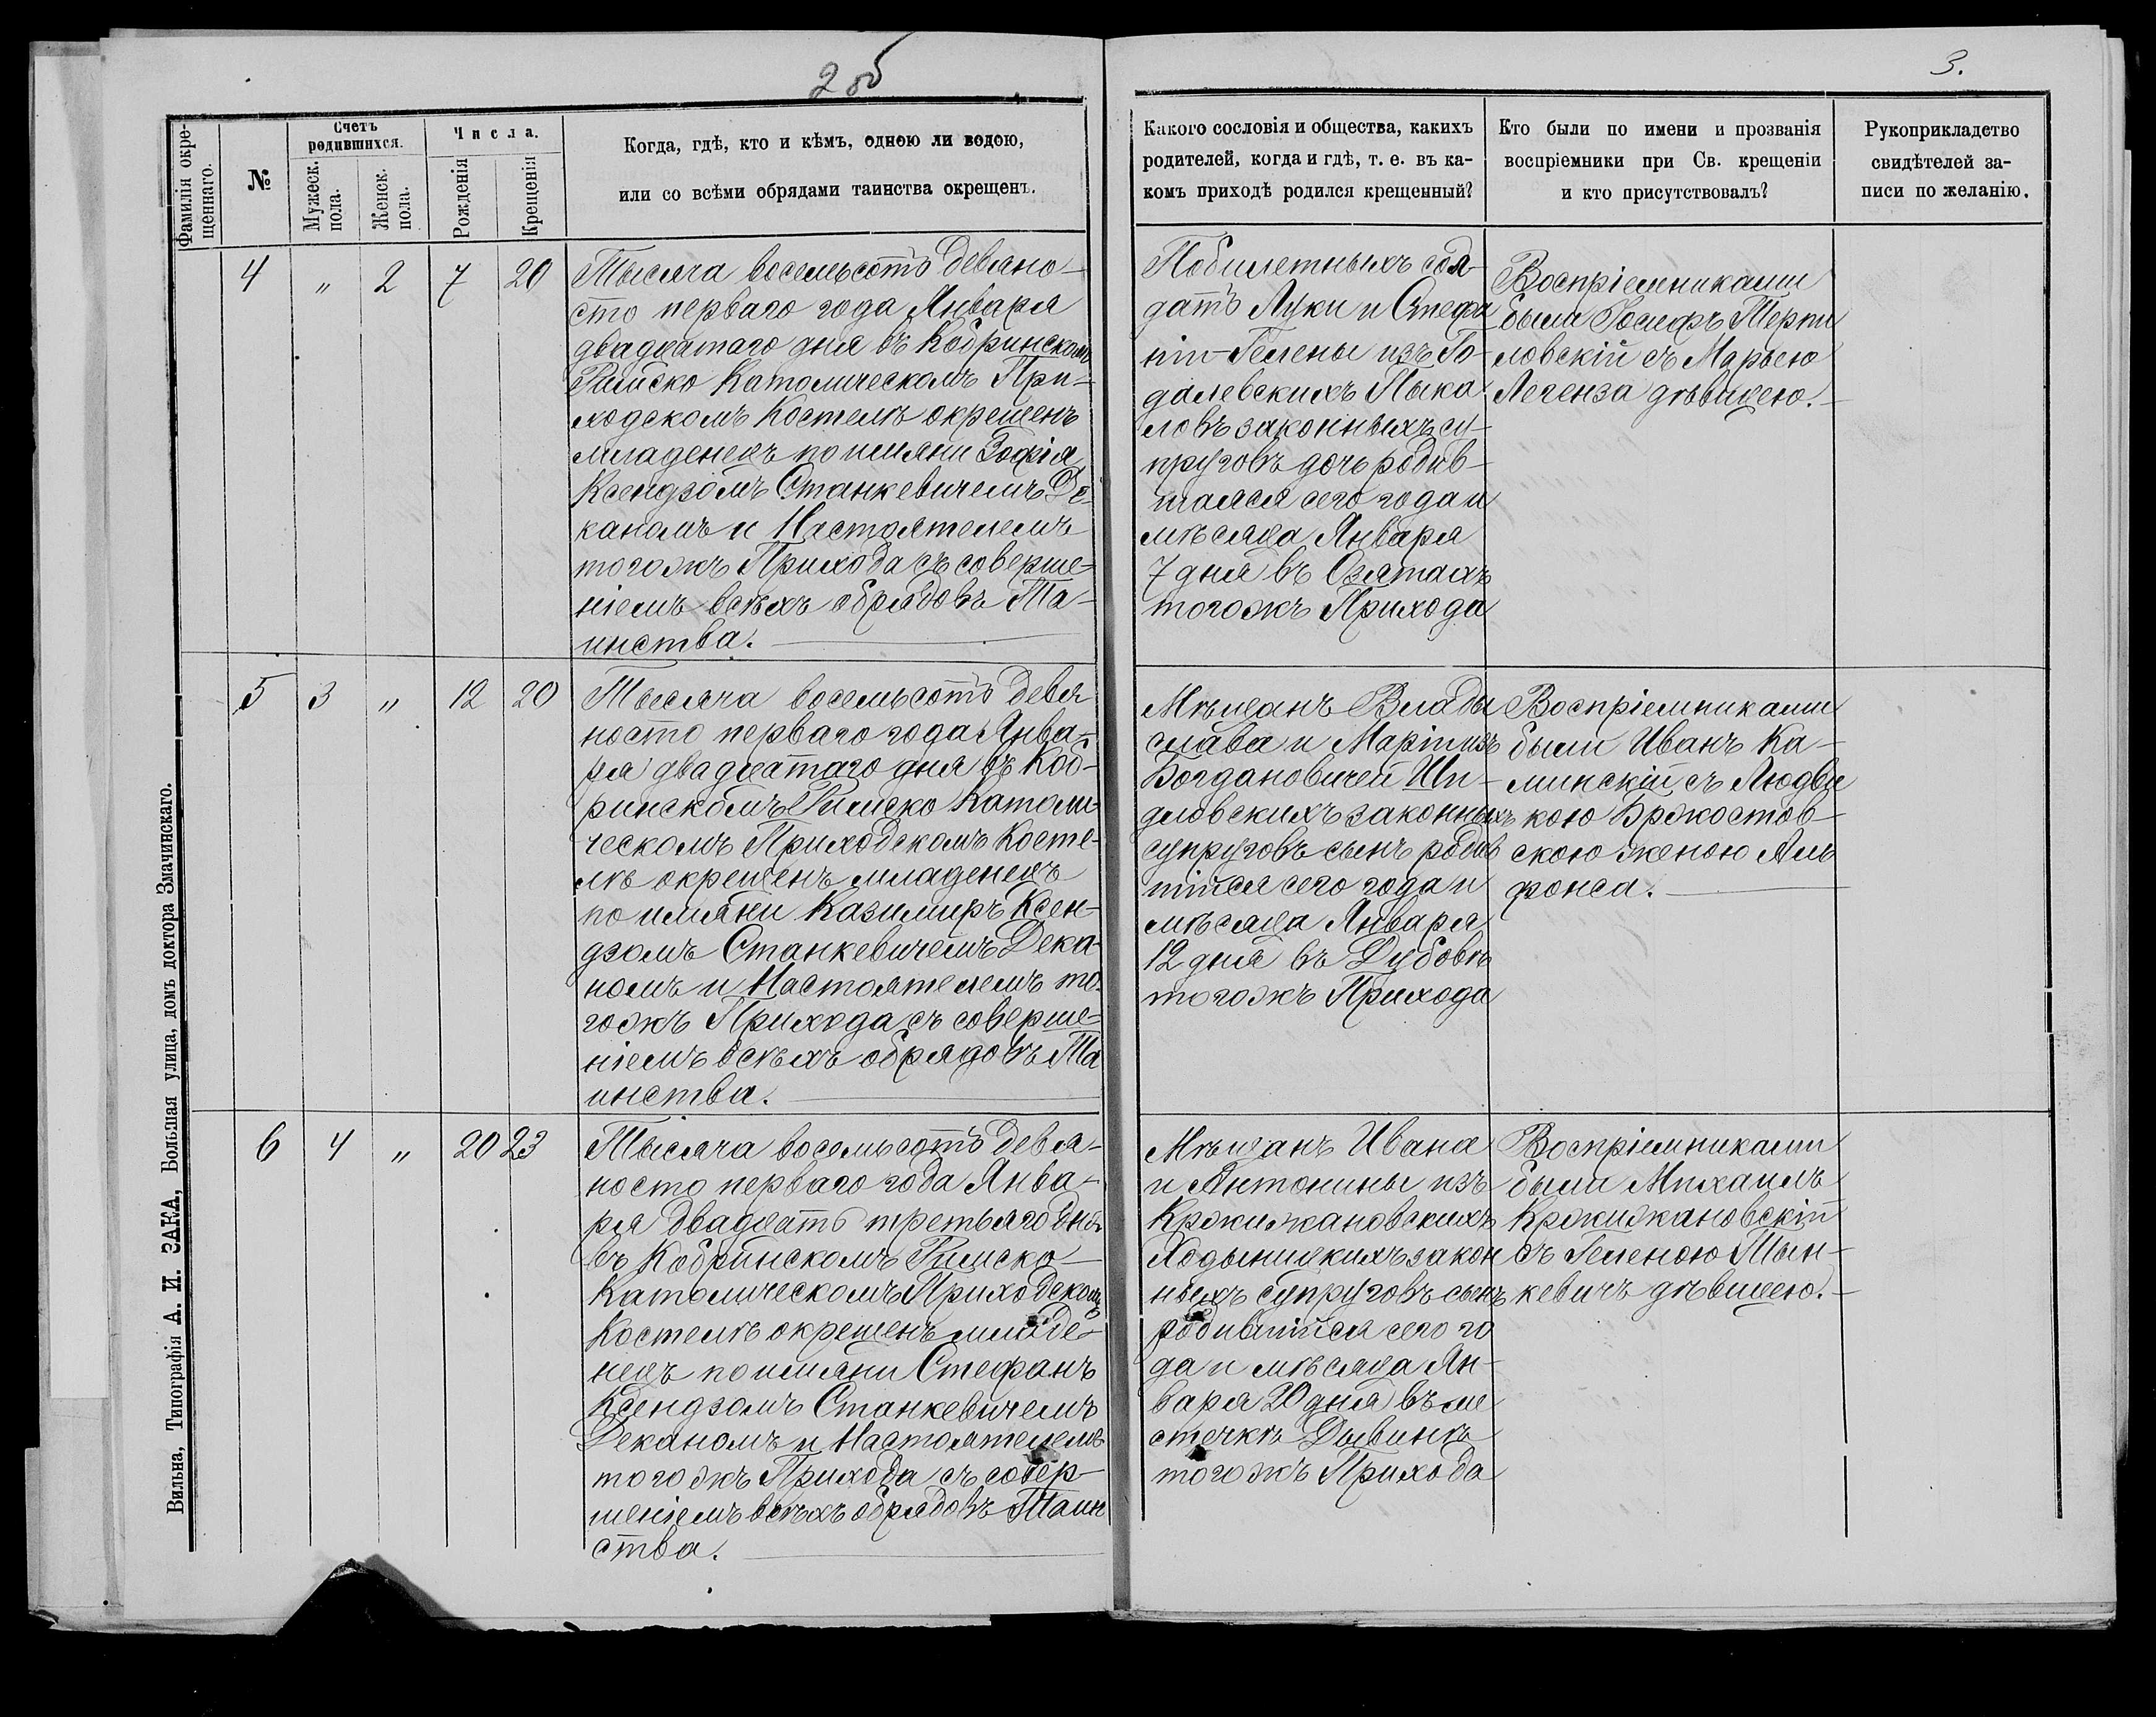 2 об
3.
Фамилія окре-
щеннаго.
№
Счетъ
родившихся.
Мужеск.
пола.
Женск.
пола.
Числа.
Рожденія
Крещенія
Когда, гдѣ, кто и кѣмъ, одною ли водою,
или со всѣми обрядами таинства окрещенъ.
Какого сословія и общества, какихъ
родителей, когда и гдѣ, т. е. въ ка-
комъ приходѣ родился крещенный?
Кто были по имени и прозванія
воспріемники при Св. крещеніи
и кто присутствовалъ?
Рукоприкладство
свидѣтелей за-
писи по желанію.
4 " 2 7 20
Тысяча восемьсотъ девяно-
сто перваго года Января
двадцатаго дня въ Кобринскомъ
Римско Католическомъ При-
ходскомъ Костелѣ окрещенъ
младенецъ по имяни Зофія
Ксендзомъ Станкевичемъ Де-
каномъ и Настоятелемъ
тогожъ Прихода съ соверше-
ніемъ всѣхъ обрядовъ Та-
инства.
Побилетныхъ сол-
датъ Луки и Стефа
ніи-Гелены изъ Го-
далевскихъ Пыка
ловъ законныхъ су-
пруговъ дочь родив-
шаяся сего года и
мѣсяца Января
7 дня въ Озятахъ
тогожъ Прихода
Воспріемниками
были Іосифъ Терпи
ловскій съ Марьею
Легенза дѣвицею.
5 3 " 12 20
Тысяча восемьсотъ девя
носто перваго года Янва-
ря двадцатаго дня въ Коб-
ринскомъ Римско Католи-
ческомъ Приходскомъ Косте-
лѣ окрещенъ младенецъ
по имяни Казимиръ Ксен-
дзомъ Станкевичемъ Дека-
номъ и Настоятелемъ то-
гожъ Прихода съ соверше-
ніемъ всѣхъ обрядовъ Та
инства.
Мѣщанъ Влады
слава и Маріи изъ
Богдановичей Ши-
дловскихъ законныхъ
супруговъ сынъ родив
шійся сего года и
мѣсяца Января
12 дня въ Дубовѣ
тогожъ Прихода
Воспріемниками
были Иванъ Ка-
минскій съ Людви
кою Бржостов-
скою женою Аль
фонса.
6 4 " 20 23
Тысяча восемьсотъ девя-
носто перваго года Янва-
ря двадцать третьяго дня
въ Кобринскомъ Римско-
Католическомъ Приходскомъ
Костелѣ окрещенъ младе-
нецъ по имяни Стефанъ
Ксендзомъ Станкевичемъ
Деканомъ и Настоятелемъ
тогожъ Прихода съ совер-
шеніемъ всѣхъ обрядовъ Таин
ства.
Мѣщанъ Ивана
и Антонины изъ
Кржижановскихъ
Ходыницкихъ закон
ныхъ супруговъ сынъ
родившійся сего го
да и мѣсяца Ян-
варя 20 дня въ ме
стечкѣ Дывинѣ
тогожъ Прихода
Воспріемниками
были Михаилъ
Кржижановскій
съ Геленою Тын-
кевичъ дѣвицею.
Вильна, Типографія А. И. ЗАКА, Большая улица, домъ доктора Змачинскаго.